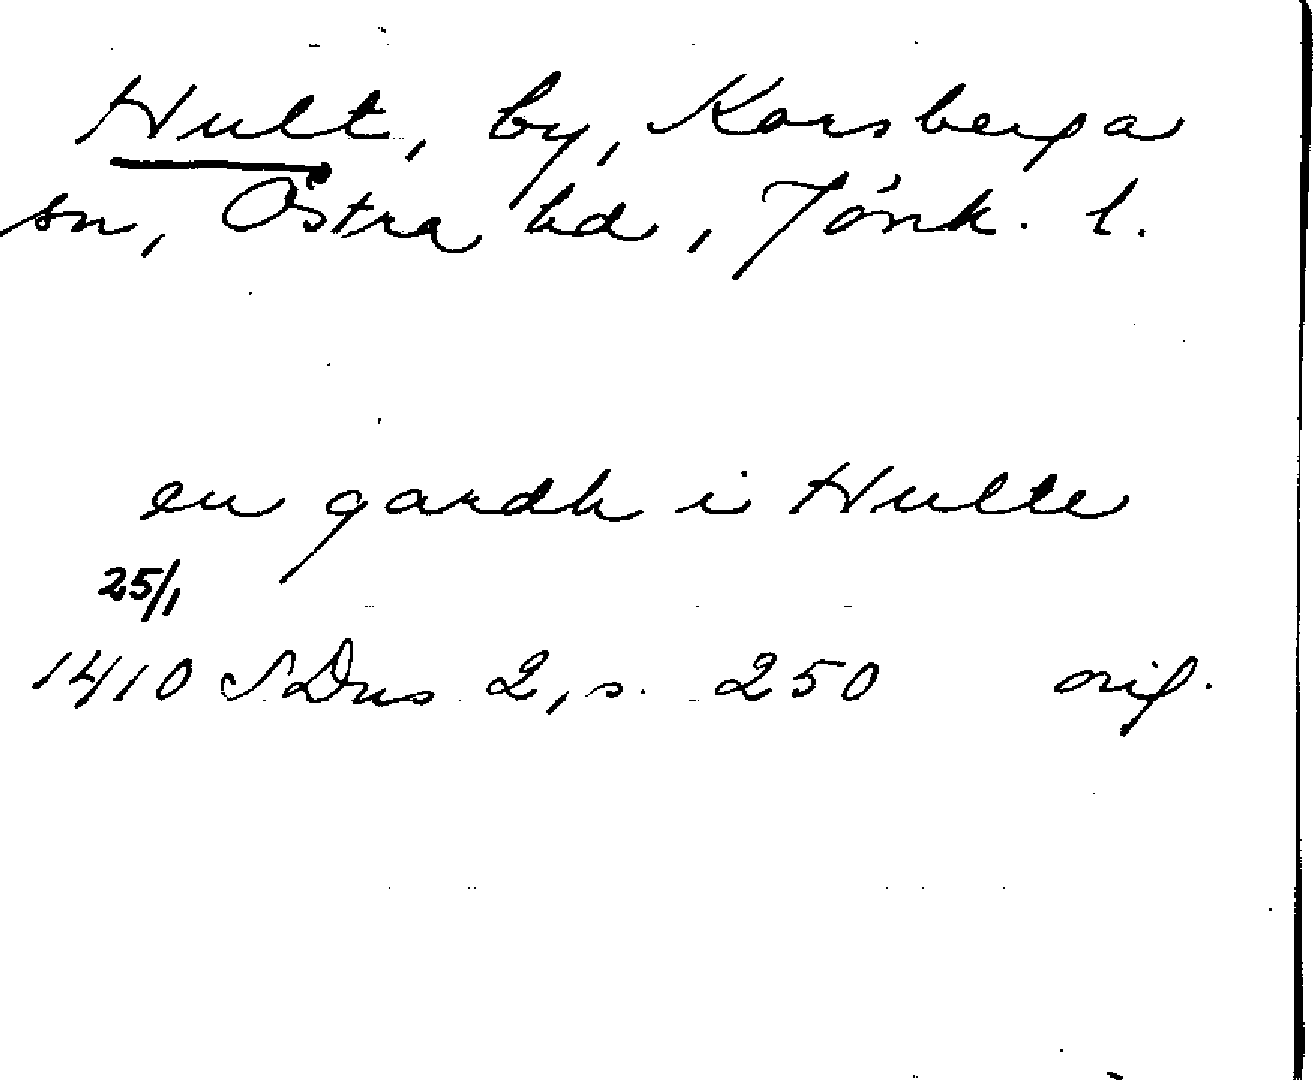 Hult, by, Korsberga
sn, Östra hd, Jönk. l.
en gardh i Hulte
25/1
1410 SDns 2, s. 250 orig.